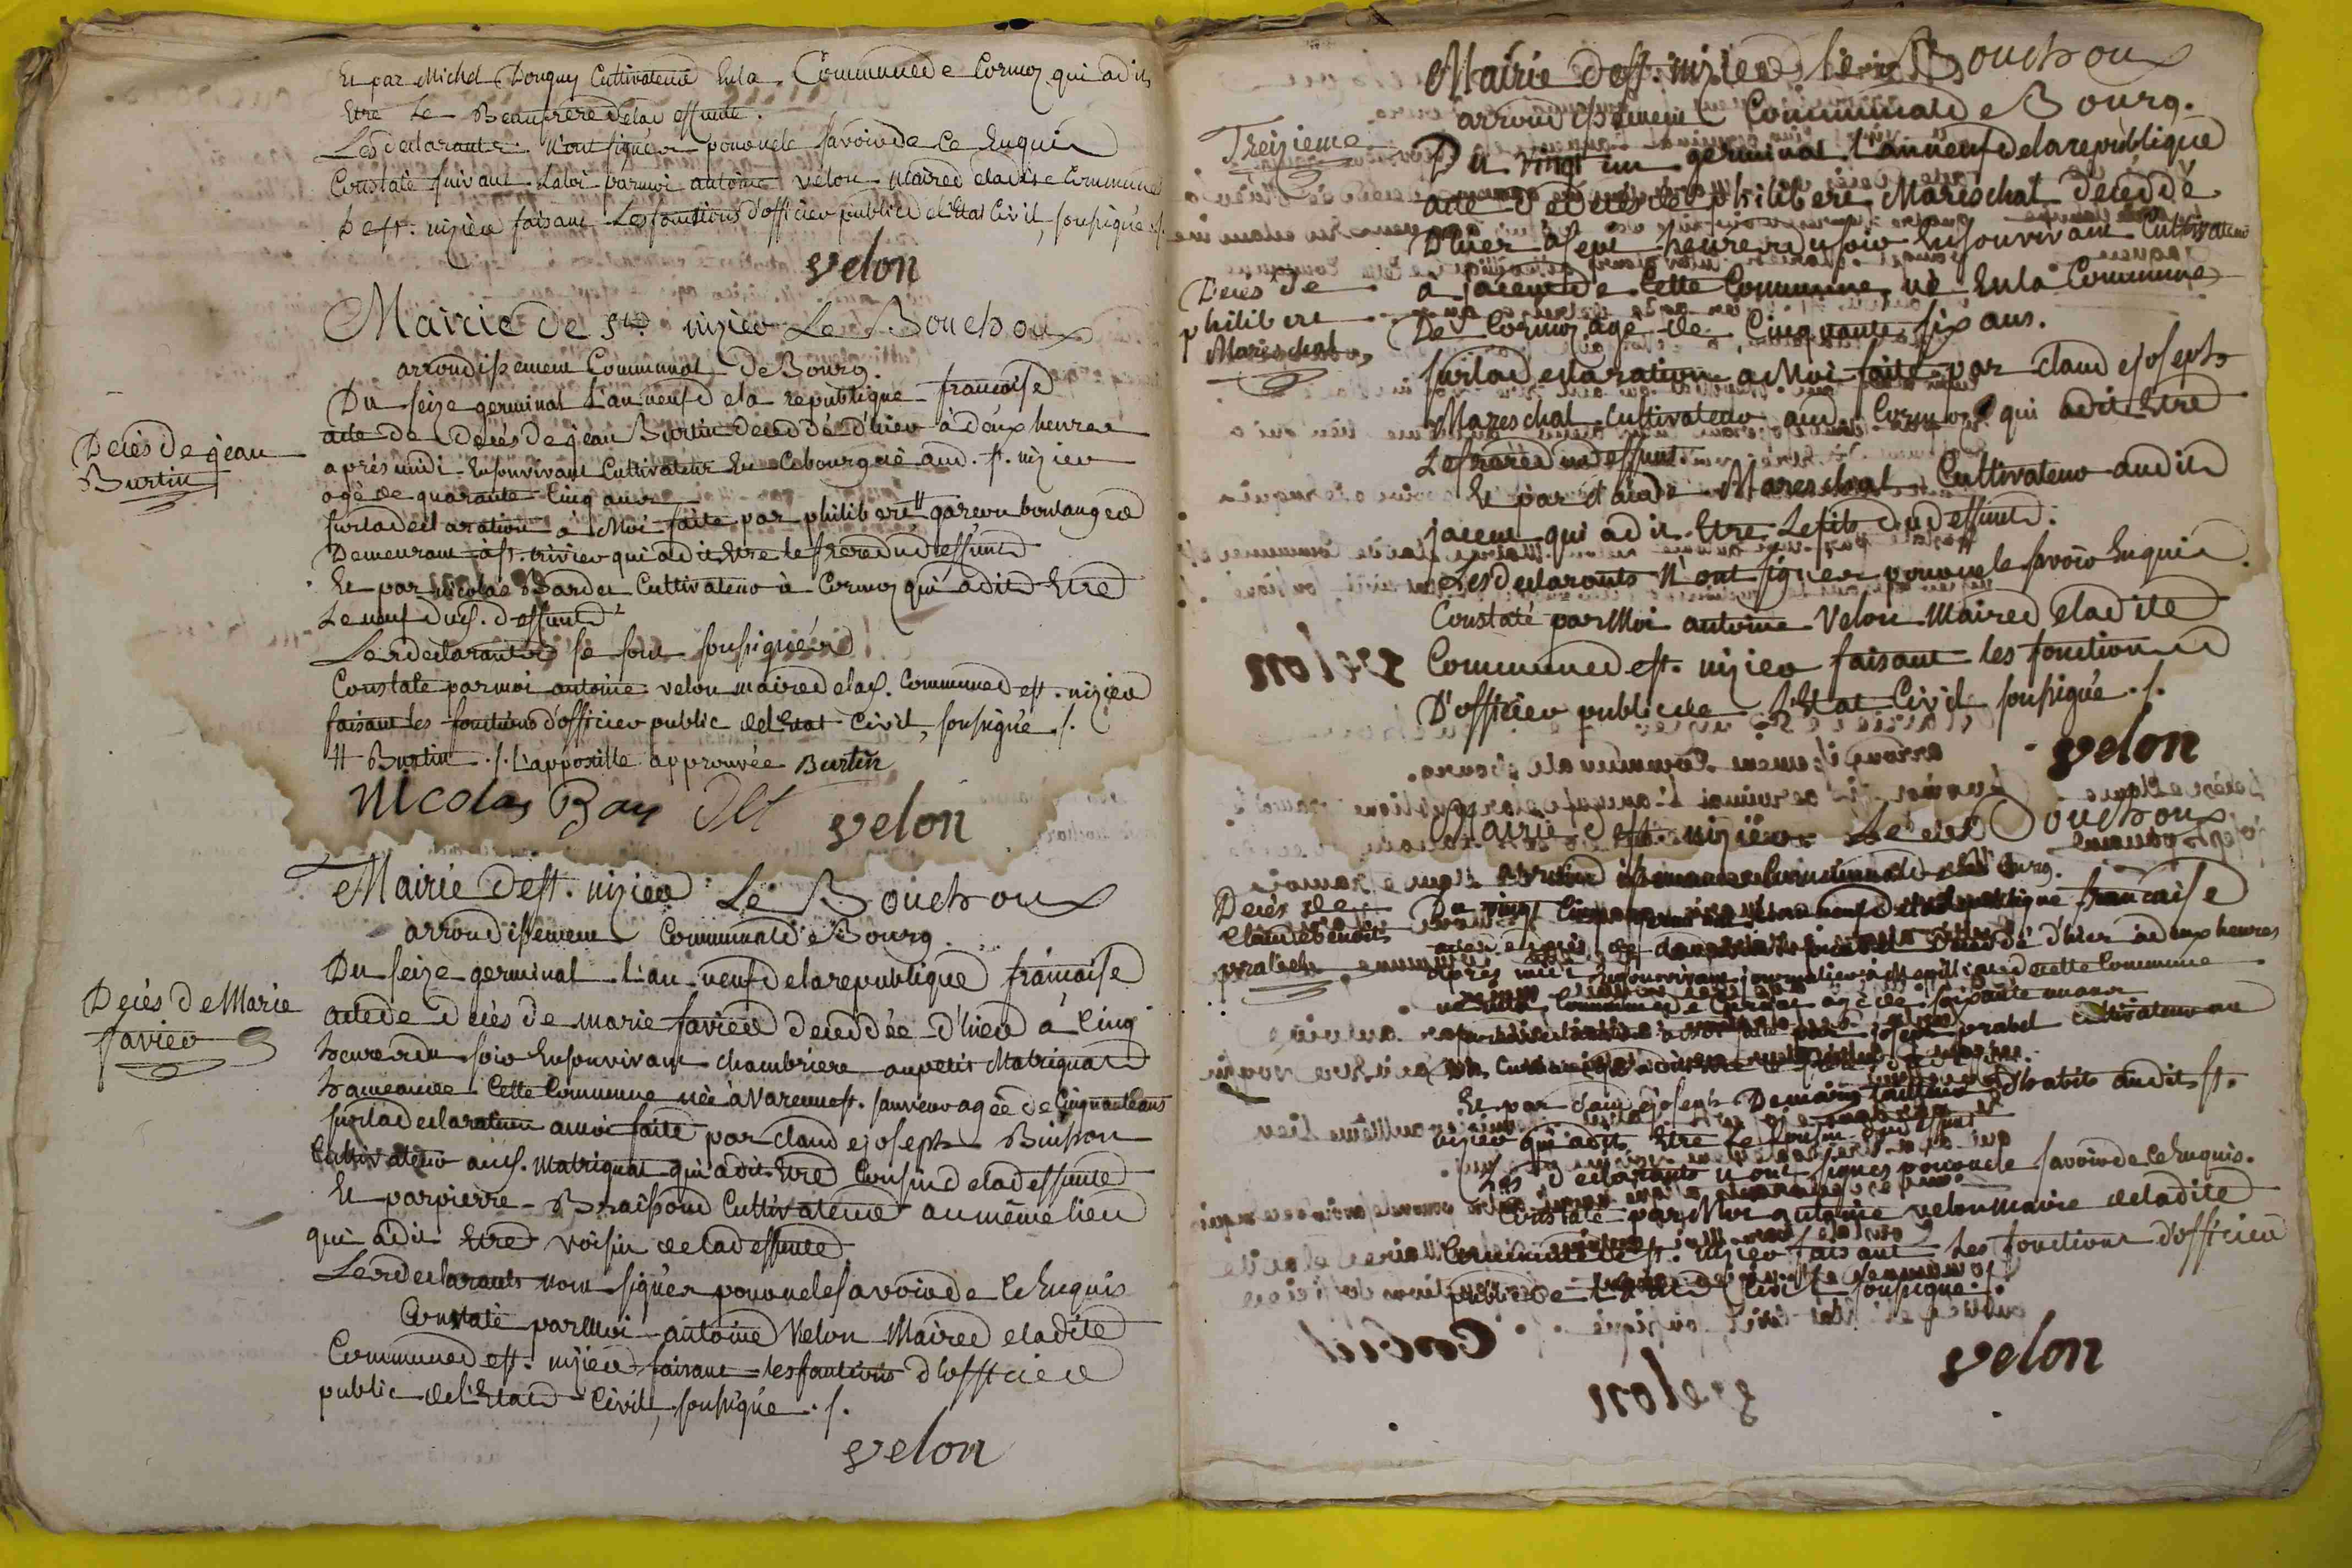 Et par Michel Donguy Cultivateur En la Commune de Cormoz qui a dit
Etre Le Beaufrere de la deffunte.
Les declarants n'ont signer pour ne le savoir de ce Enquis
Constaté suivant la loi par moi antoine velon maire de la dite Commune
De st. nizier faisant Les fonctions d'officier public de l'Etat Civil, soussigné ./.
velon
Mairie de st. nizier Le Bouchoux
arrondissement Communal De Bourg.
Du seize germinal L'an neuf de la republique francaise
Decés de jean
Burtin
acte de Decés de jean Burtin decedé d'hier à deux heures
aprés midi En son vivant Cultivateur En aud. st. nizier
agé de quarante Cinq ans
sur la declaration à Moi faite par philibert # garcon boulanger
Demeurant à st. trivier qui a dit Etre le frere du deffunt
Et par nicolas Bardet Cultivateur à Cormoz qui a dit Etre
Le neuf dud. deffunt
Les declarants se sont soussignér
Constaté par moi antoine velon maire de lad. Commune de st. nizier
faisant les fonctions d'officier public de l'Etat Civil, soussigné ./.
# Burtin ./. l'appostille approuvée Burtin
Nicolas Bar det velon
Mairie de st. nizier Le Bouchoux
arrondissement Communal de Bourg.
Du seize germinal l'an neuf de la republique francaise
Decés De Marie
favier
acte de decés de marie favier decedée d'hier à Cinq
heures du soir En son vivant chambriere au petit Matrignat
hameau de Cette Commune née à Varenne st. sauveur agée de Cinquante ans
sur la declaration a moi faite par claude joseph Buisson
Cultivateur aud. matrignat qui a dit Etre Cousin de la deffunte
Et par pierre Cultivateur au même lieu
qui a dit Etre voisin de la deffunte
Les declarants n'ont signér pour ne le savoir de Ce Enquis
Constaté par Moi antoine Velon Maire de la dite
Commune de st. nizier faisant les fonctions d'officier
public de l'Etat Civil, soussigné ./.
velon
Mairie de st. nizier le Bouchoux
arrondissement Communal de Bourg.
Treizieme
Du vingt un germinal l'an neuf de la republique
acte de decés de philibert Mareschal decedé
D'hier à sept heures du soir En son vivant Cultivateur
Decés de
philibert
Mareschal
a jacent de Cette Commune, né En la Commune
De Cormoz agé de Cinquante six ans.
sur la declaration à Moi faite par claude joseph
Mareschal Cultivateur aud. Cormoz qui a dit Etre
Le frere du deffunt
Et par claude Mareschal Cultivateur au dit
jacent qui a dit Etre Le fils du deffunt.
Les declarants N'ont signer pour ne le savoir Enquis
Constaté par Moi antoine Velon Maire de la dite
Commune de st. nizier faisant les fonctions
D'officier public de L'Etat Civil soussigné ./.
velon
Mairie de st. nizier Le Bouchoux
arrondissement Communal de Bourg.
Decés de
Claude benoit
Du vingt germinal l'an neuf de la republique francaise
acte de decés de decedé d'hier à deux heures
aprés midi En son vivant journalier à de cette Commune
né En la Commune de agé de soixante
sur la declaration à moi faite par joseph prabel cultivateur au
Et par claude joseph tailleur D'habits au dit st.
nizier qui a dit Etre Le Cousin du deffunt
Les declarants n'ont signés pour ne le savoir de Ce Enquis.
Constaté par Moi antoine velon maire de la dite
Commune de st. nizier faisant Les fonctions d'officier
public de l'Etat Civil soussigné.
velon